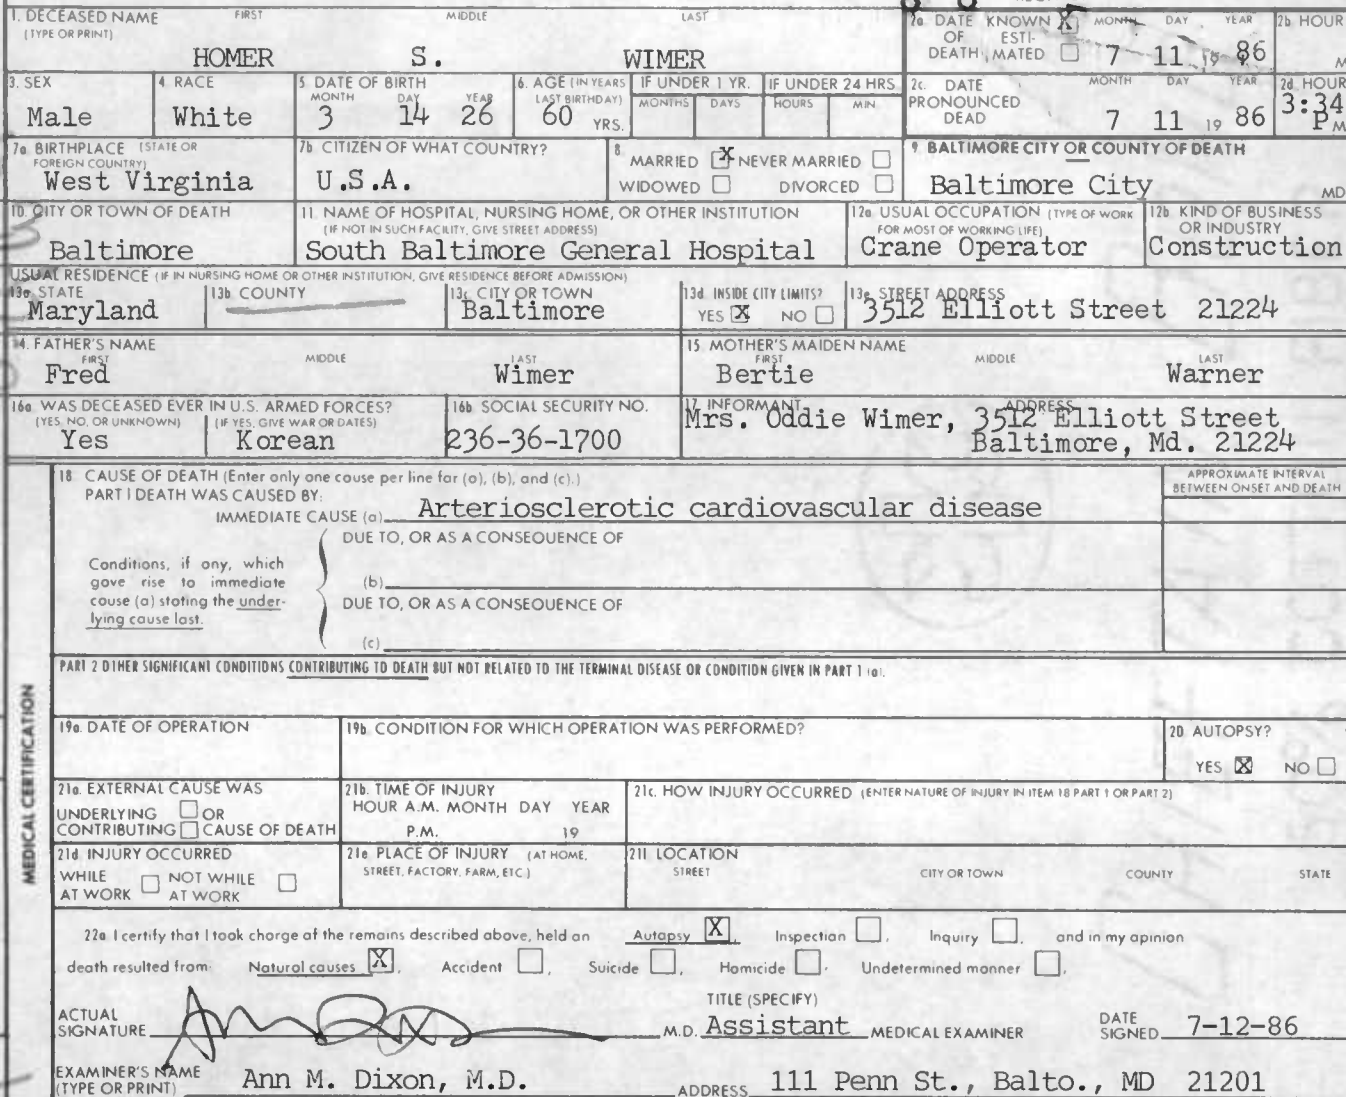 1. DECEASED NAME FIRST MIDDLE LAST
(TYPE OR PRINT)
HOMER S. WIMER
2a DATE KNOWN X MONTH DAY YEAR
OF ESTI-
DEATH MATED 7 11 19 86
2b HOUR
M
3. SEX
Male
4 RACE
White
5 DATE OF BIRTH
MONTH DAY YEAR
3 14 26
6. AGE (IN YEARS
LAST BIRTHDAY)
60 YRS.
IF UNDER 1 YR.
MONTHS DAYS
IF UNDER 24 HRS
HOURS MIN
2c. DATE MONTH DAY YEAR
PRONOUNCED
DEAD 7 11 19 86
2d HOUR
3:34
P M
7a BIRTHPLACE (STATE OR
FOREIGN COUNTRY)
West Virginia
7b CITIZEN OF WHAT COUNTRY?
U.S.A.
8
MARRIED X NEVER MARRIED
WIDOWED DIVORCED
9 BALTIMORE CITY OR COUNTY OF DEATH
Baltimore City MD
10. CITY OR TOWN OF DEATH
Baltimore
11. NAME OF HOSPITAL, NURSING HOME, OR OTHER INSTITUTION
(IF NOT IN SUCH FACILITY, GIVE STREET ADDRESS)
South Baltimore General Hospital
12a USUAL OCCUPATION (TYPE OF WORK
FOR MOST OF WORKING LIFE)
Crane Operator
12b KIND OF BUSINESS
OR INDUSTRY
Construction
USUAL RESIDENCE (IF IN NURSING HOME OR OTHER INSTITUTION, GIVE RESIDENCE BEFORE ADMISSION)
13a STATE
Maryland
13b COUNTY
13c CITY OR TOWN
Baltimore
13d INSIDE CITY LIMITS?
YES X NO
13e STREET ADDRESS
3512 Elliott Street 21224
14. FATHER'S NAME
FIRST MIDDLE LAST
Fred Wimer
15. MOTHER'S MAIDEN NAME
FIRST MIDDLE LAST
Bertie Warner
16a WAS DECEASED EVER IN U.S. ARMED FORCES?
(YES, NO, OR UNKNOWN) (IF YES, GIVE WAR OR DATES)
Yes Korean
16b SOCIAL SECURITY NO.
236-36-1700
17 INFORMANT ADDRESS
Mrs. Oddie Wimer, 3512 Elliott Street
Baltimore, Md. 21224
MEDICAL CERTIFICATION
18 CAUSE OF DEATH (Enter only one cause per line for (a), (b), and (c).)
PART I DEATH WAS CAUSED BY:
IMMEDIATE CAUSE (a) Arteriosclerotic cardiovascular disease
APPROXIMATE INTERVAL
BETWEEN ONSET AND DEATH
DUE TO, OR AS A CONSEQUENCE OF
Conditions, if any, which
gave rise to immediate
cause (a) stating the under-
lying cause last.
(b)
DUE TO, OR AS A CONSEQUENCE OF
(c)
PART 2 OTHER SIGNIFICANT CONDITIONS CONTRIBUTING TO DEATH BUT NOT RELATED TO THE TERMINAL DISEASE OR CONDITION GIVEN IN PART 1 (a).
19a. DATE OF OPERATION
19b CONDITION FOR WHICH OPERATION WAS PERFORMED?
20 AUTOPSY?
YES X NO
21a. EXTERNAL CAUSE WAS
UNDERLYING OR
CONTRIBUTING CAUSE OF DEATH
21b. TIME OF INJURY
HOUR A.M. MONTH DAY YEAR
P.M. 19
21c. HOW INJURY OCCURRED (ENTER NATURE OF INJURY IN ITEM 18 PART 1 OR PART 2)
21d INJURY OCCURRED
WHILE NOT WHILE
AT WORK AT WORK
21e PLACE OF INJURY (AT HOME,
STREET, FACTORY, FARM, ETC.)
21f LOCATION
STREET CITY OR TOWN COUNTY STATE
22a I certify that I took charge of the remains described above, held an Autopsy X, Inspection, Inquiry, and in my opinion
death resulted from: Natural causes X, Accident, Suicide, Homicide, Undetermined manner,
ACTUAL
SIGNATURE M.D.
TITLE (SPECIFY)
Assistant MEDICAL EXAMINER
DATE
SIGNED 7-12-86
EXAMINER'S NAME
(TYPE OR PRINT) Ann M. Dixon, M.D.
ADDRESS 111 Penn St., Balto., MD 21201